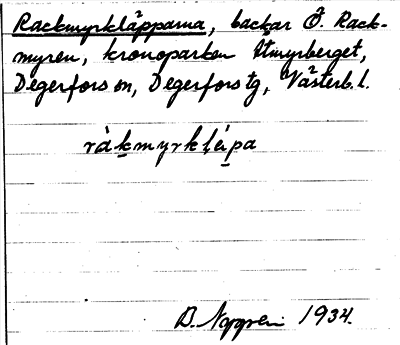 Rackmyrkläpparna, backar Ö. Rack-
myren, kronoparken Utmyrberget,
Degerfors sn, Degerfors tg, Västerb. l.
råkmyrkläpa
1934.